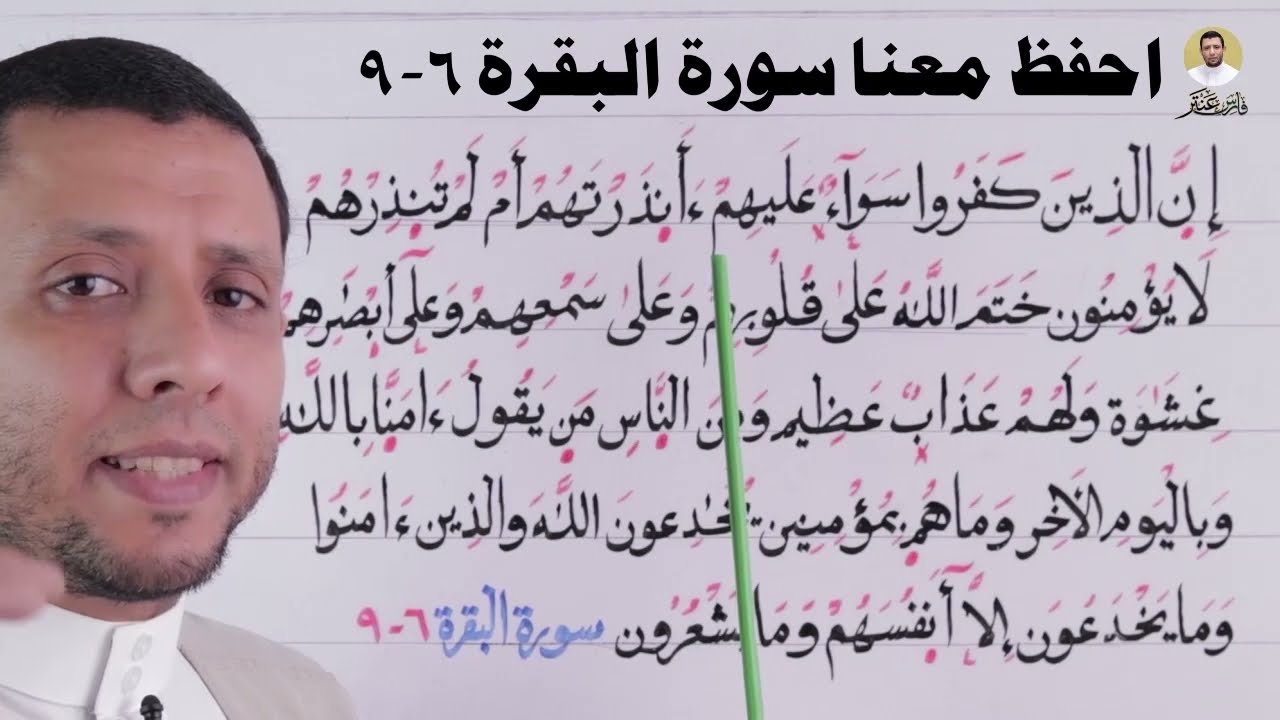 احفظ معنا سورة البقرة ٦-٩
فارس عنتر
إِنَّ الَّذِينَ كَفَرُوا سَوَآءٌ عَلَيهِمْ ءَأَنذَرْتَهُمْ أَمْ لَمْ تُنذِرْهُمْ
لَا يُؤْمِنُون خَتَمَ اللَّهُ عَلَىٰ قُلُوبِهِمْ وَعَلَىٰ سَمْعِهِمْ وَعَلَىٰٓ أَبْصَٰرِهِمْ
غِشَٰوَة وَلَهُمْ عَذَابٌ عَظِيم وَمِنَ النَّاسِ مَن يَقُولُ ءَامَنَّا بِاللَّهِ
وَبِالْيَوْمِ الْآخِرِ وَمَا هُم بِمُؤْمِنِين يُخَٰدِعونَ اللَّهَ والذِين ءَامَنُوا
وَمَا يَخْدَعُونَ إِلَّآ أَنفُسَهُمْ وَمَا يَشْعُرُون سورة البقرة ٦-٩